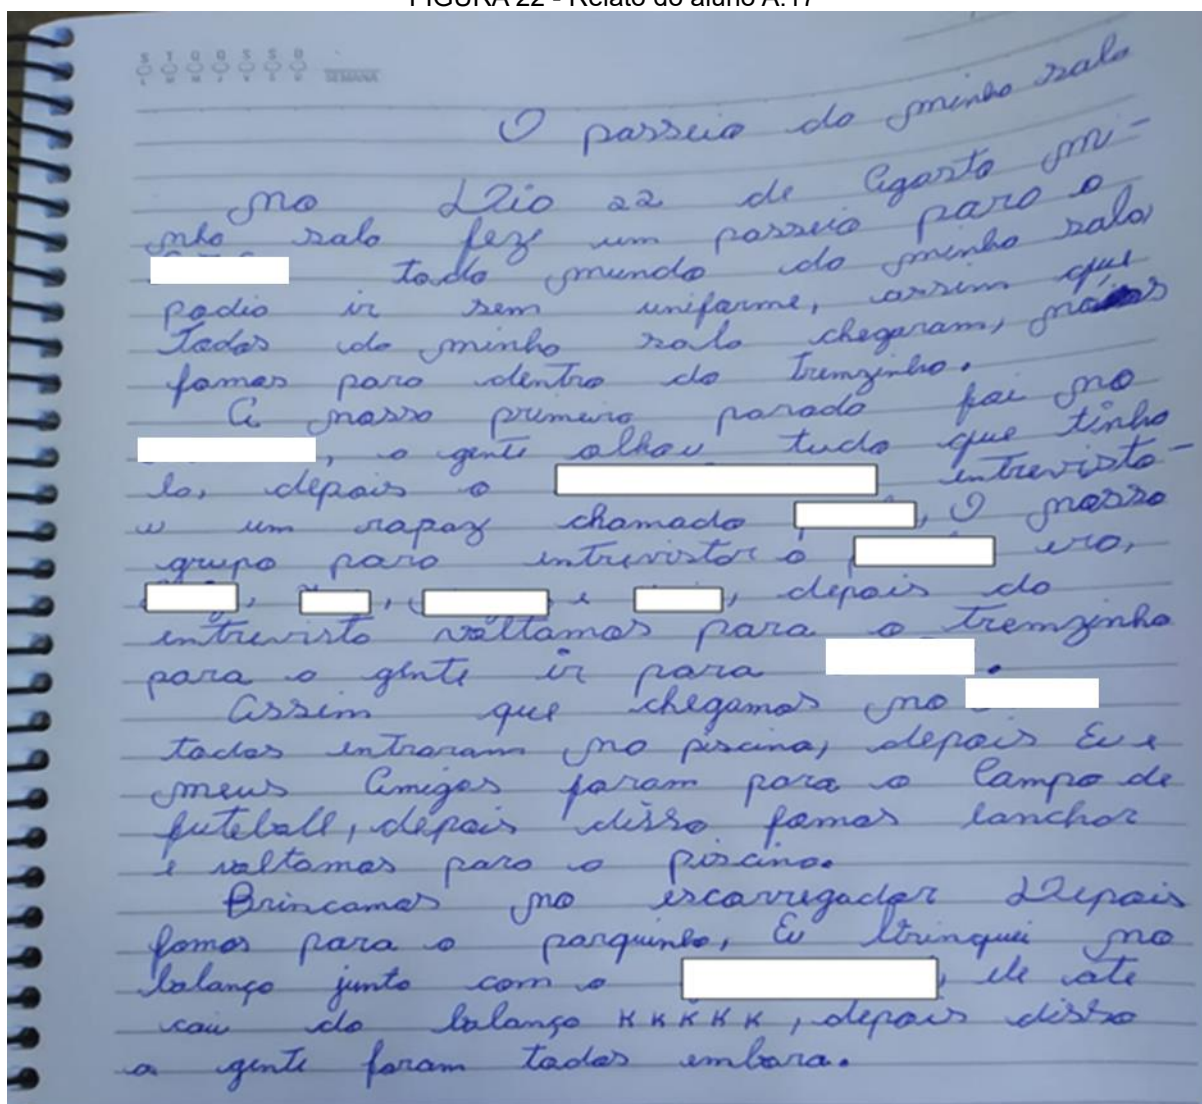 FIGURA 22 - Relato do aluno A.17
S T Q Q S S D
SEMANA
O passeio da minha sala
No Dia 22 de Agosto mi-
nha sala fez um passeio para o
todo mundo da minha sala,
podia ir sem uniforme, assim que
Todos da minha sala chegaram, nós
fomos para dentro do tremzinho.
A nossa primeira parada foi no
, a gente olhou tudo que tinha
la, depois o entrevisto-
u um rapaz chamado , O nosso
grupo para entrevistar o era,
, , e , depois da
entrevista voltamos para o tremzinho
para a gente ir para .
Assim que chegamos no
todos entraram na piscina, depois Eu e
meus Amigos foram para o Campo de
futeball, depois disso fomos lanchar
e voltamos para a piscina.
Brincamos no escorregador Depois
fomos para o parquinho, Eu brinquei no
balanço junto com o , ele ate
caiu do balanço KKKKK, depois disso
a gente foram todos embora.